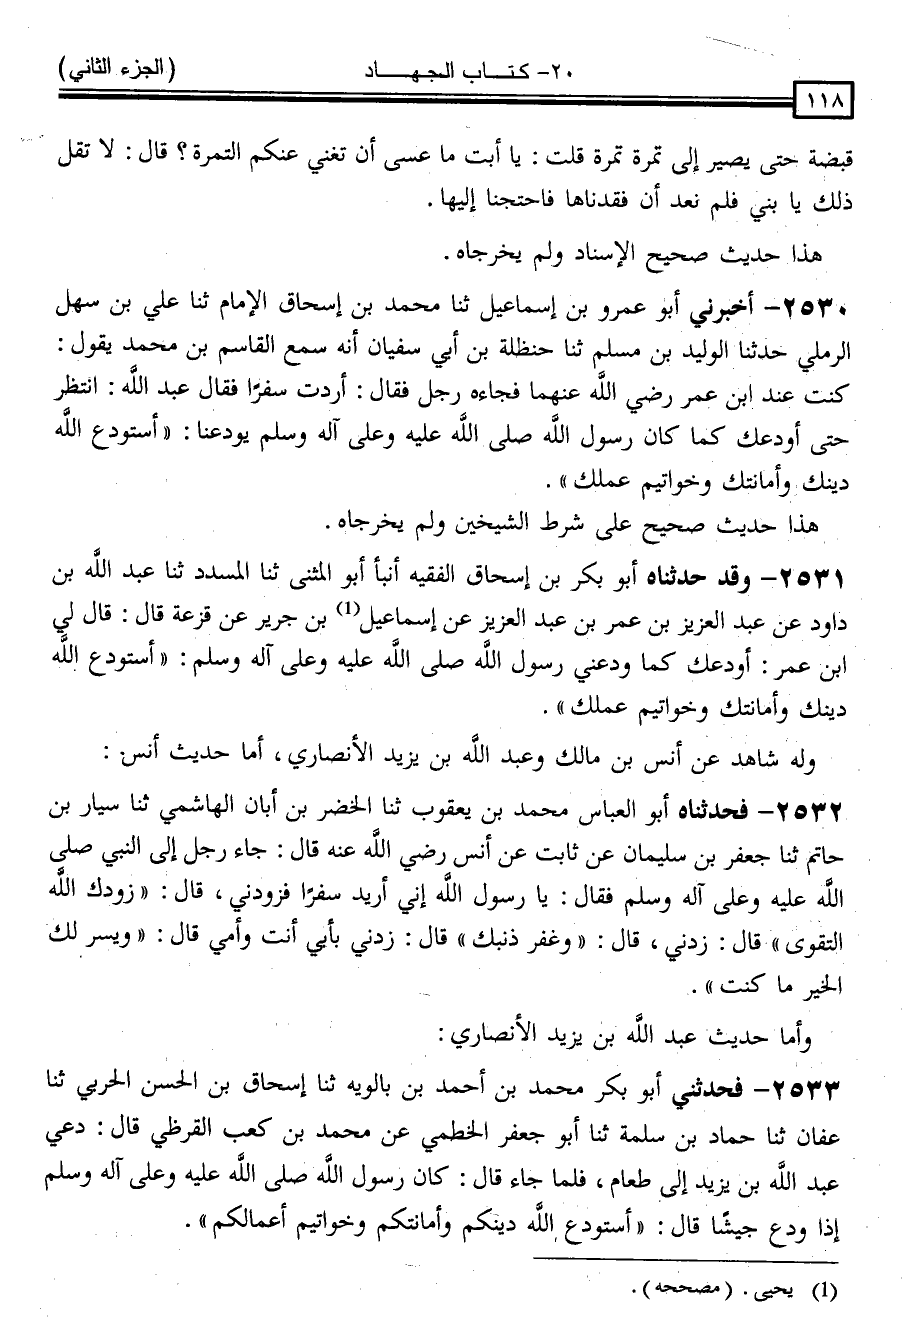 ٢٠- كتـــاب الـجهـــاد (الجزء الثاني)
١١٨
قبضة حتى يصير إلى تمرة تمرة قلت : يا أبت ما عسى أن تغني عنكم التمرة ؟ قال : لا تقل
ذلك يا بني فلم نعد أن فقدناها فاحتجنا إليها .
هذا حديث صحيح الإسناد ولم يخرجاه .
٢٥٣٠- أخبرني أبو عمرو بن إسماعيل ثنا محمد بن إسحاق الإمام ثنا علي بن سهل
الرملي حدثنا الوليد بن مسلم ثنا حنظلة بن أبي سفيان أنه سمع القاسم بن محمد يقول :
كنت عند ابن عمر رضي اللَّه عنهما فجاءه رجل فقال : أردت سفرًا فقال عبد اللَّه : انتظر
حتى أودعك كما كان رسول اللَّه صلى اللَّه عليه وعلى آله وسلم يودعنا : « أستودع اللَّه
دينك وأمانتك وخواتيم عملك » .
هذا حديث صحيح على شرط الشيخين ولم يخرجاه .
٢٥٣١- وقد حدثناه أبو بكر بن إسحاق الفقيه أنبأ أبو المثنى ثنا المسدد ثنا عبد اللَّه بن
داود عن عبد العزيز بن عمر بن عبد العزيز عن إسماعيل(1) بن جرير عن قزعة قال : قال لي
ابن عمر : أودعك كما ودعني رسول اللَّه صلى اللَّه عليه وعلى آله وسلم : « أستودع اللَّه
دينك وأمانتك وخواتيم عملك » .
وله شاهد عن أنس بن مالك وعبد اللَّه بن يزيد الأنصاري ، أما حديث أنس :
٢٥٣٢- فحدثناه أبو العباس محمد بن يعقوب ثنا الخضر بن أبان الهاشمي ثنا سيار بن
حاتم ثنا جعفر بن سليمان عن ثابت عن أنس رضي اللَّه عنه قال : جاء رجل إلى النبي صلى
اللَّه عليه وعلى آله وسلم فقال : يا رسول اللَّه إني أريد سفرًا فزودني ، قال : « زودك اللَّه
التقوى » قال : زدني ، قال : « وغفر ذنبك » قال : زدني بأبي أنت وأمي قال : « ويسر لك
الخير ما كنت » .
وأما حديث عبد اللَّه بن يزيد الأنصاري :
٢٥٣٣- فحدثني أبو بكر محمد بن أحمد بن بالويه ثنا إسحاق بن الحسن الحربي ثنا
عفان ثنا حماد بن سلمة ثنا أبو جعفر الخطمي عن محمد بن كعب القرظي قال : دعي
عبد اللَّه بن يزيد إلى طعام ، فلما جاء قال : كان رسول اللَّه صلى اللَّه عليه وعلى آله وسلم
إذا ودع جيشًا قال : « أستودع اللَّه دينكم وأمانتكم وخواتيم أعمالكم » .
(1) يحيى . (مصححه) .